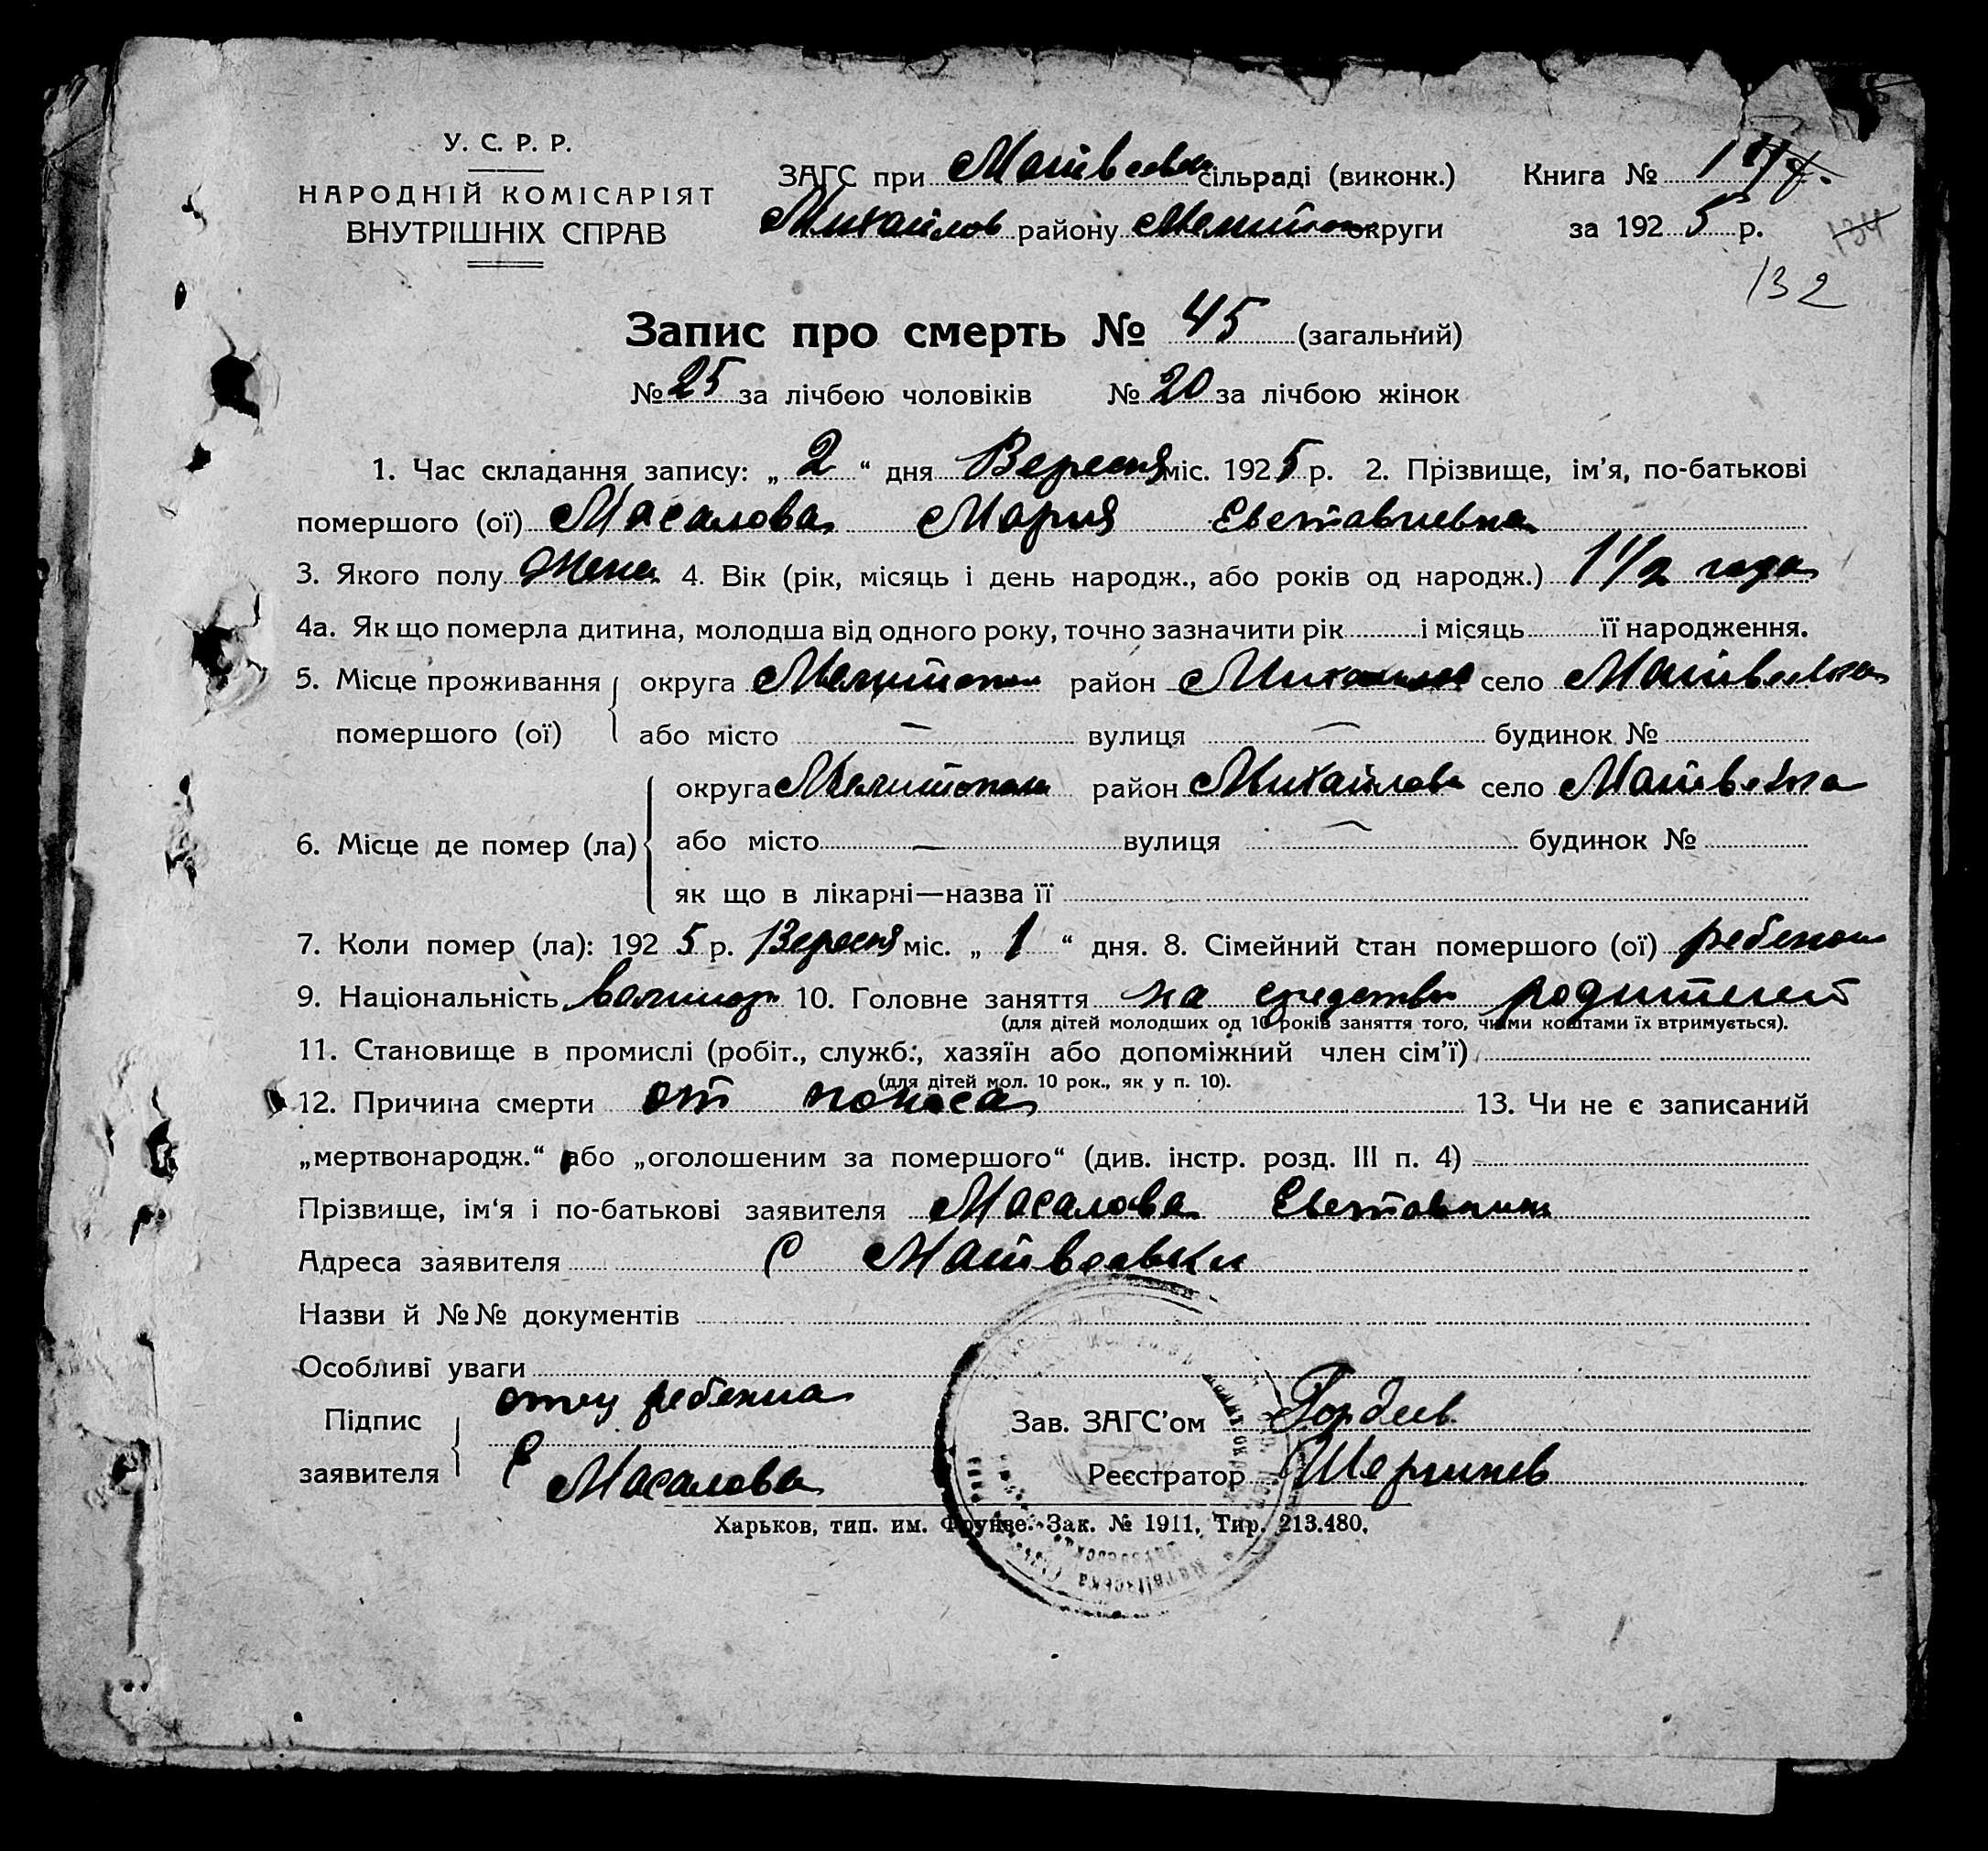 У. С. Р. Р.
НАРОДНІЙ КОМІСАРІЯТ
ВНУТРІШНІХ СПРАВ
ЗАГС при Матвеевк сільраді (виконк.) Книга № 1
Михайлов району Мелитоп округи за 1925 р. 134
132
Запис про смерть № 45 (загальний)
№ 25 за лічбою чоловіків № 20 за лічбою жінок
1. Час складання запису: „ 2 “ дня Вересня міс. 1925 р. 2. Прізвище, ім’я, по-батькові
помершого (ої) Масалова Мария Евставиевна
3. Якого полу Жен. 4. Вік (рік, місяць і день народж., або років од народж.) 1 1/2 года
4а. Як що померла дитина, молодша від одного року, точно зазначити рік і місяць її народження.
5. Місце проживання округа Мелитопол район Михайлов село Матвеевка
помершого (ої) або місто — вулиця — будинок №
округа Мелитопол район Михайлов село Матвеевка
6. Місце де помер (ла) або місто — вулиця — будинок №
як що в лікарні—назва її
7. Коли помер (ла): 1925 р. Вересня міс. „ 1 “ дня. 8. Сімейний стан помершого (ої) ребенок
9. Національність 10. Головне заняття на средства родителей
(для дітей молодших од 10 років заняття того, чиїми коштами їх втримується).
11. Становище в промислі (робіт., служб., хазяїн або допоміжний член сім’ї)
(для дітей мол. 10 рок., як у п. 10).
12. Причина смерти от поноса 13. Чи не є записаний
„мертвонародж.“ або „оголошеним за помершого“ (див. інстр. розд. III п. 4)
Прізвище, ім‘я і по-батькові заявителя Масалова
Адреса заявителя С Матвеевки
Назви й №№ документів
Особливі уваги
Підпис отец ребенка Зав. ЗАГС’ом Гордеев
заявителя Е Масалова Реєстратор
Харьков, тип. им. Фрунзе. Зак. № 1911, Тир. 213.480.